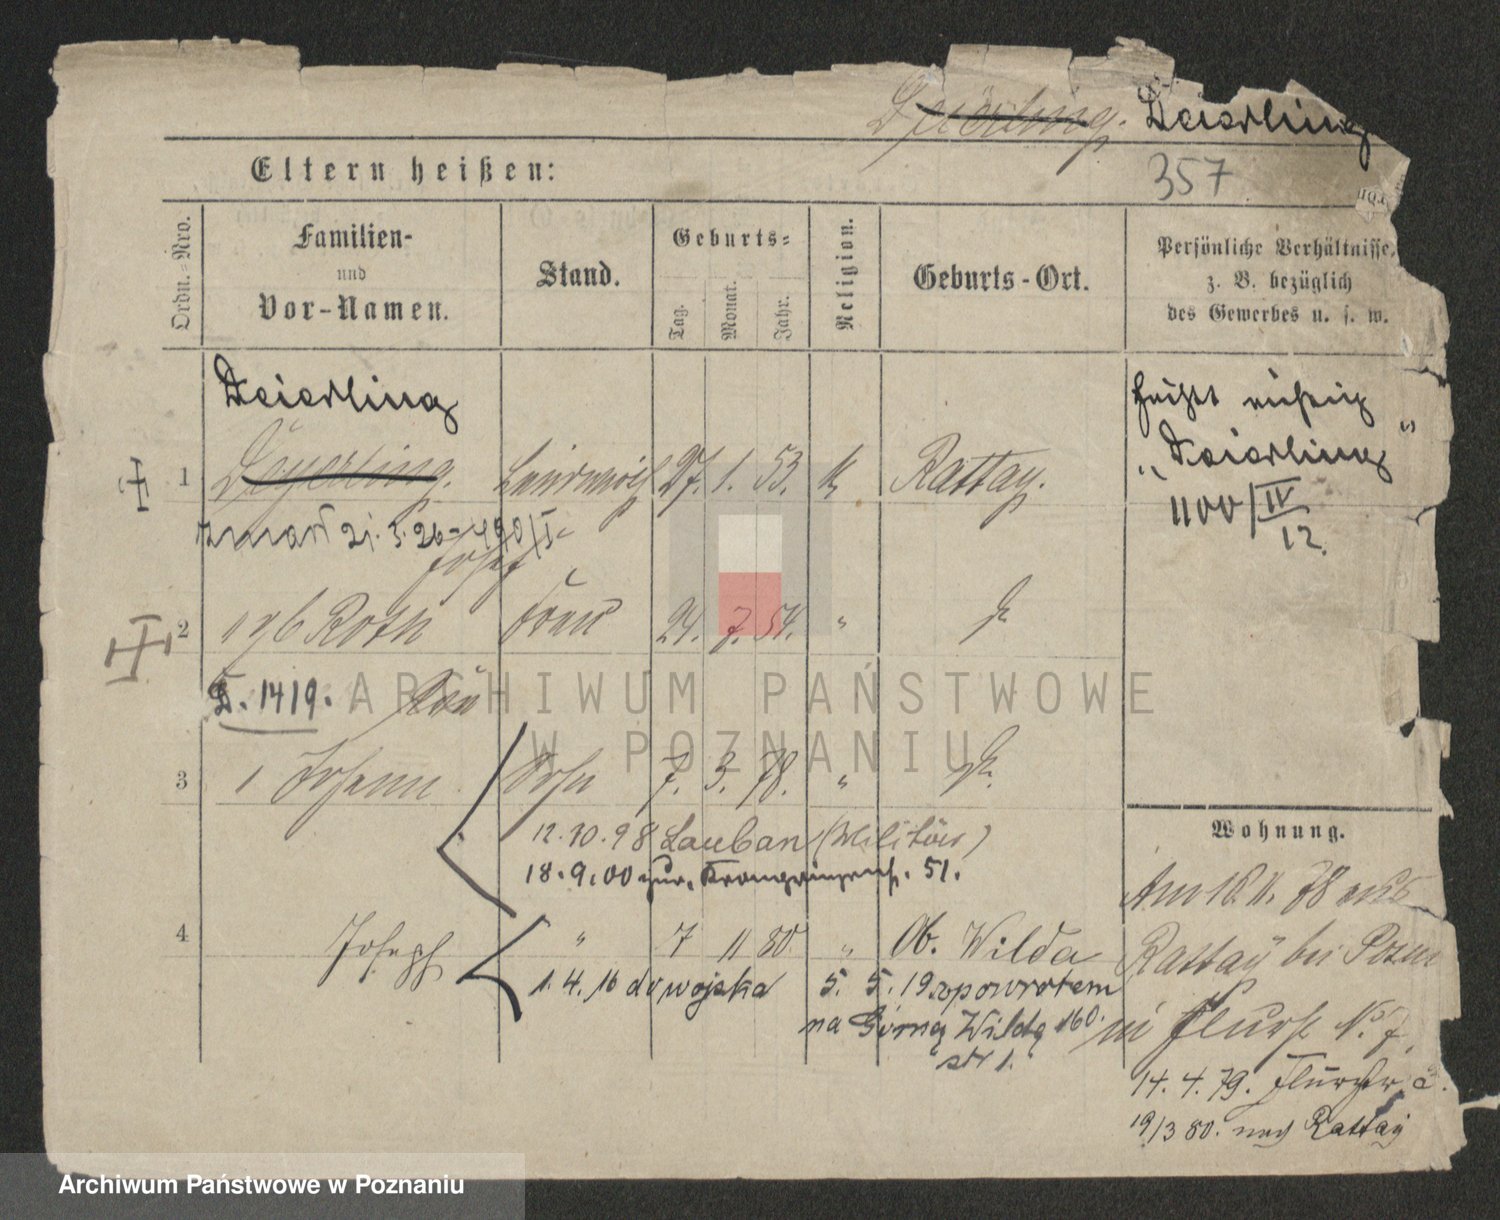 Deierling
357
Eltern heißen:
Ordn.=Nro.
Familien-
und
Vor-Namen.
Stand.
Geburts=
Tag.
Monat.
Jahr.
Religion.
Geburts-Ort.
Persönliche Verhältnisse,
z. B. bezüglich
des Gewerbes u. s. w.
Deierling
heißt richtig
„Deierling"
1100/IV
12.
1 Deyerling. 27. 1. 53. k Rattay.
zmarł 21. 5. 26 - 490/I
Josef
2 geb Roth Frau 24. 7. 54. "
D. 1419.
ARCHIWUM PAŃSTWOWE
W POZNANIU
3 1 Johann Sohn 7. 3. 78. "
12.10.98 Lauban (Militär)
18.9.00 zur. Kronprinzenst. 51.
Wohnung.
4 Joseph " 7 11 80 " Ob. Wilda
1. 4. 16 do wojska 5. 5. 19 zpowrotem
na Górną Wildę 160.
str 1.
Am 16. 11. 78 aus
Rattay bei Posen
in Flurst. No. 7.
14. 4. 79.
19/3 80. nach Rattay
Archiwum Państwowe w Poznaniu